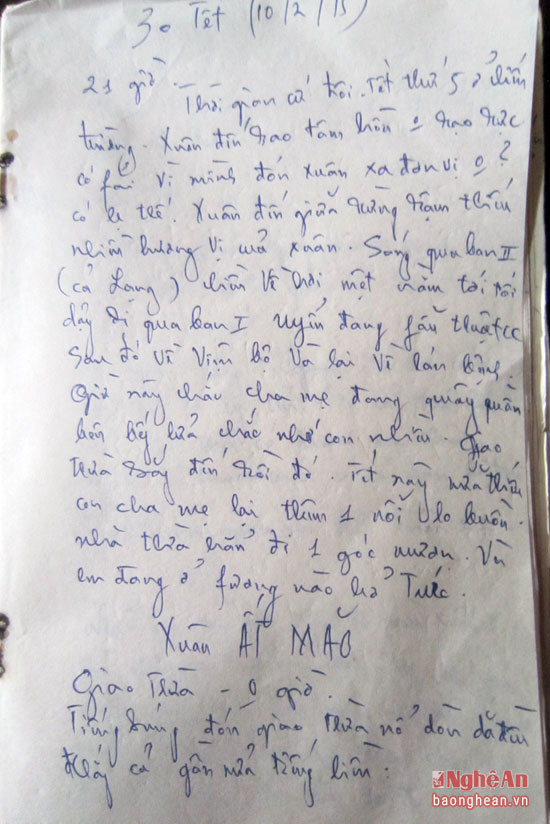 30 Tết (10/2/75)
21 giờ.
Thời gian cứ trôi. Tết thứ 5 ở chiến
trường. Xuân đến sao tâm hồn o rạo rực
có fải vì mình đón xuân xa đơn vị o?
có lẽ thế. Xuân đến giữa rừng Trạm thiếu
nhiều hương vị của xuân. Sáng qua ban II
(cả Lạng) liên một năm tới tối
dậy đi qua ban I Uyển đang fẫu thuật cc
sau đó về viện bộ và lại về lán
Giờ này chắc cha mẹ đang quây quần
bên bếp lửa chắc nhớ con nhiều. Giao
thừa sắp đến rồi đó. Tết này nữa thiếu
con cha mẹ lại thêm 1 nỗi lo buồn.
nhà thừa hẳn đi 1 góc Và
em đang ở fương nào hở Trúc.
Xuân ẤT MÃO
Giao Thừa - 0 giờ.
Tiếng súng đón giao thừa nổ dòn dã
đẩy cả gần nửa tiếng liền:
Nghệ An
baonghean.vn